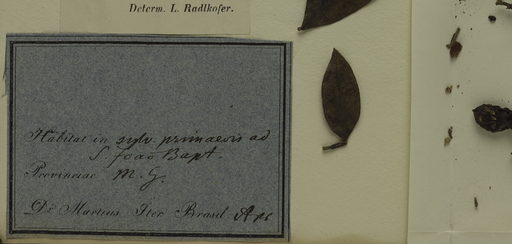 Determ. L. Radlkofer.
Habitat in sylv. primaevis ad
S. Joaõ Bapt.
Provinciae M. G.
Dr. Martius Iter Brasil